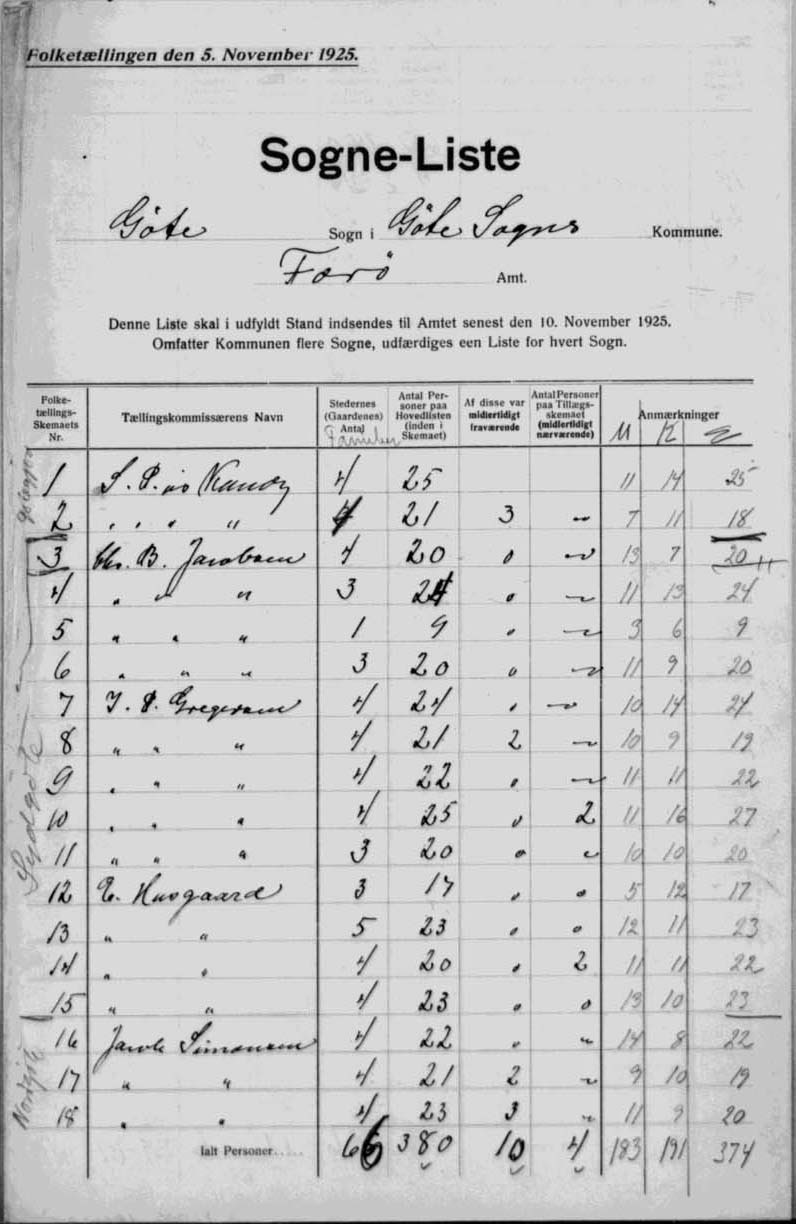 Folketællingen den 5. November 1925.
Sogne-Liste
Göte Sogn i Göte Sogns Kommune.
Færö Amt.
Denne Liste skal i udfyldt Stand indsendes til Amtet senest den 10. November 1925.
Omfatter Kommunen flere Sogne, udfærdiges een Liste for hvert Sogn.
Folketællings-Skemaets Nr. Tællingskommissærens Navn Stedernes (Gaardenes) Antal Familier Antal Personer paa Hovedlisten (inden i Skemaet) Af disse var midlertidigt fraværende Antal Personer paa Tillægsskemaet (midlertidigt nærværende) Anmærkninger M K
1 S. P. 4 25 11 14 25
2 " " " " 4 21 3 " 7 11 18
3 Chr. B. Jacobsen 4 20 0 " 13 7 20
4 " " " 3 24 0 " 11 13 24
5 " " " 1 9 " " 3 6 9
6 " " " 3 20 0 " 11 9 20
7 J. P. Gregersen 4 24 " " 10 14 24
8 " " " 4 21 2 " 10 9 19
9 " " " 4 22 0 " 11 11 22
10 " " " 4 25 0 2 11 16 27
11 " " " 3 20 0 " 10 10 20
12 E. Husgaard 3 17 0 0 5 12 17
13 " " 5 23 0 0 12 11 23
14 " " 4 20 0 2 11 11 22
15 " " 4 23 0 0 13 10 23
16 Jacob Simonsen 4 22 0 " 14 8 22
17 " " 4 21 2 " 9 10 19
18 " " 4 23 3 " 11 9 20
Ialt Personer..... 66 380 10 4 183 191 374
Sydgöte